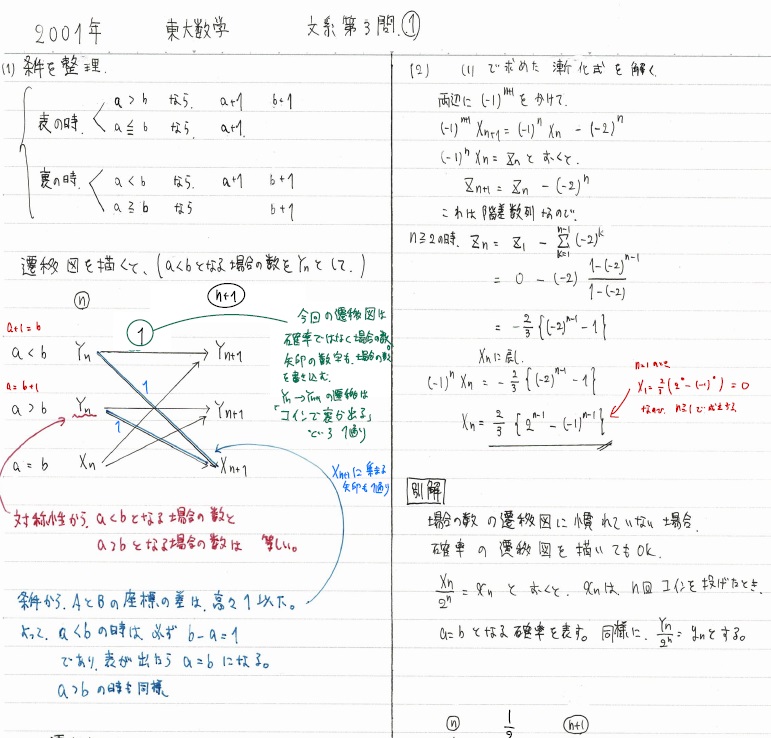 2001年 東大数学 文系第3問.①
(1) 条件を整理.
表の時. a > b なら. a+1 b+1
a ≦ b なら a+1.
裏の時. a < b なら. a+1 b+1
a ≧ b なら b+1
遷移図を描くと、(a<bとなる場合の数をYnとして.)
n n+1
1
今回の遷移図は
確率ではなく場合の数.
矢印の数字も、場合の数
を書き込む.
Yn→Yn+1の遷移は
「コインで裏が出る」
という1通り
a+1=b
a < b Yn Yn+1
a=b+1
1
a > b Yn Yn+1
1
a = b Xn Xn+1
Xn+1に集まる
矢印も1通り
対称性から、a<bとなる場合の数と
a>bとなる場合の数は 等しい。
条件から、AとBの座標の差は、高々1以下。
よって、a<bの時は、必ず b-a=1
であり、表が出たら a=b になる。
a>b の時も同様
(2) (1) で求めた 漸化式を解く.
両辺に (-1)^{n+1} をかけて.
(-1)^{n+1} Xn+1 = (-1)^n Xn - (-2)^n
(-1)^n Xn = Zn とおくと.
Zn+1 = Zn - (-2)^n
これは階差数列なので.
n≧2の時. Zn = Z1 - Σ_{k=1}^{n-1} (-2)^k
= 0 - (-2) \frac{1-(-2)^{n-1}}{1-(-2)}
= -\frac{2}{3} {(-2)^{n-1} - 1}
Xnに戻し.
(-1)^n Xn = -\frac{2}{3} {(-2)^{n-1} - 1}
Xn = \frac{2}{3} {2^{n-1} - (-1)^{n-1}}
X1 = \frac{2}{3} (2^0 - (-1)^0) = 0
なので、n≧1で成立する.
別解
場合の数の遷移図に慣れていない場合.
確率の遷移図を描いてもOK.
\frac{Xn}{2^n} = xn とおくと、xnは、n回コインを投げたとき.
a=b となる確率を表す。同様に、\frac{Yn}{2^n} = yn とする。
n \frac{1}{2} n+1